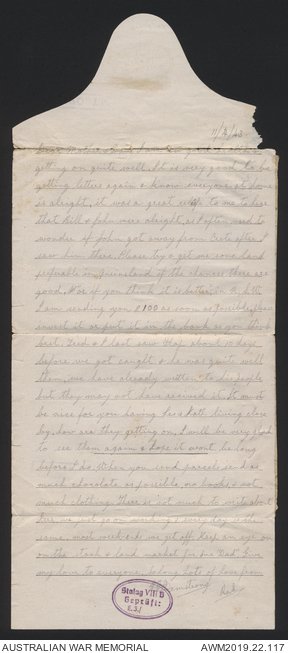 7/3/43
Dear Mother & Dad,
getting on quite well. It is very good to be
getting letters again & know everyone at home
is alright, it was a great relife to me to hear
that Bill & John were alright, as I often used to
wonder if John got away from Crete after I
saw him there. Please try & get me some land
in Queensland if the chances there are
good. & or if you think it is better in
I am sending you £100 as soon as possible, please
invest it or put it in the bank as you think
best. & I last saw about 10 days
before we got caught & he was quite well
then, we have already written to his people
but they may not have received it. It must
be nice for you having Les & Kath living close
by, how are they getting on, I will be very glad
to see them again & hope it wont be long
before I do. When you send parcels send as
much chocolate as possible, no books, & not
much clothing. There is not much to write about
here we just go on working & every day is the
same, most week-ends we get off. Keep an eye on
on the stock & land market for me "Dad". Give
my love to everyone, so long lots of love from
Stalag VIII B
Geprüft:
AUSTRALIAN WAR MEMORIAL
AWM2019.22.117